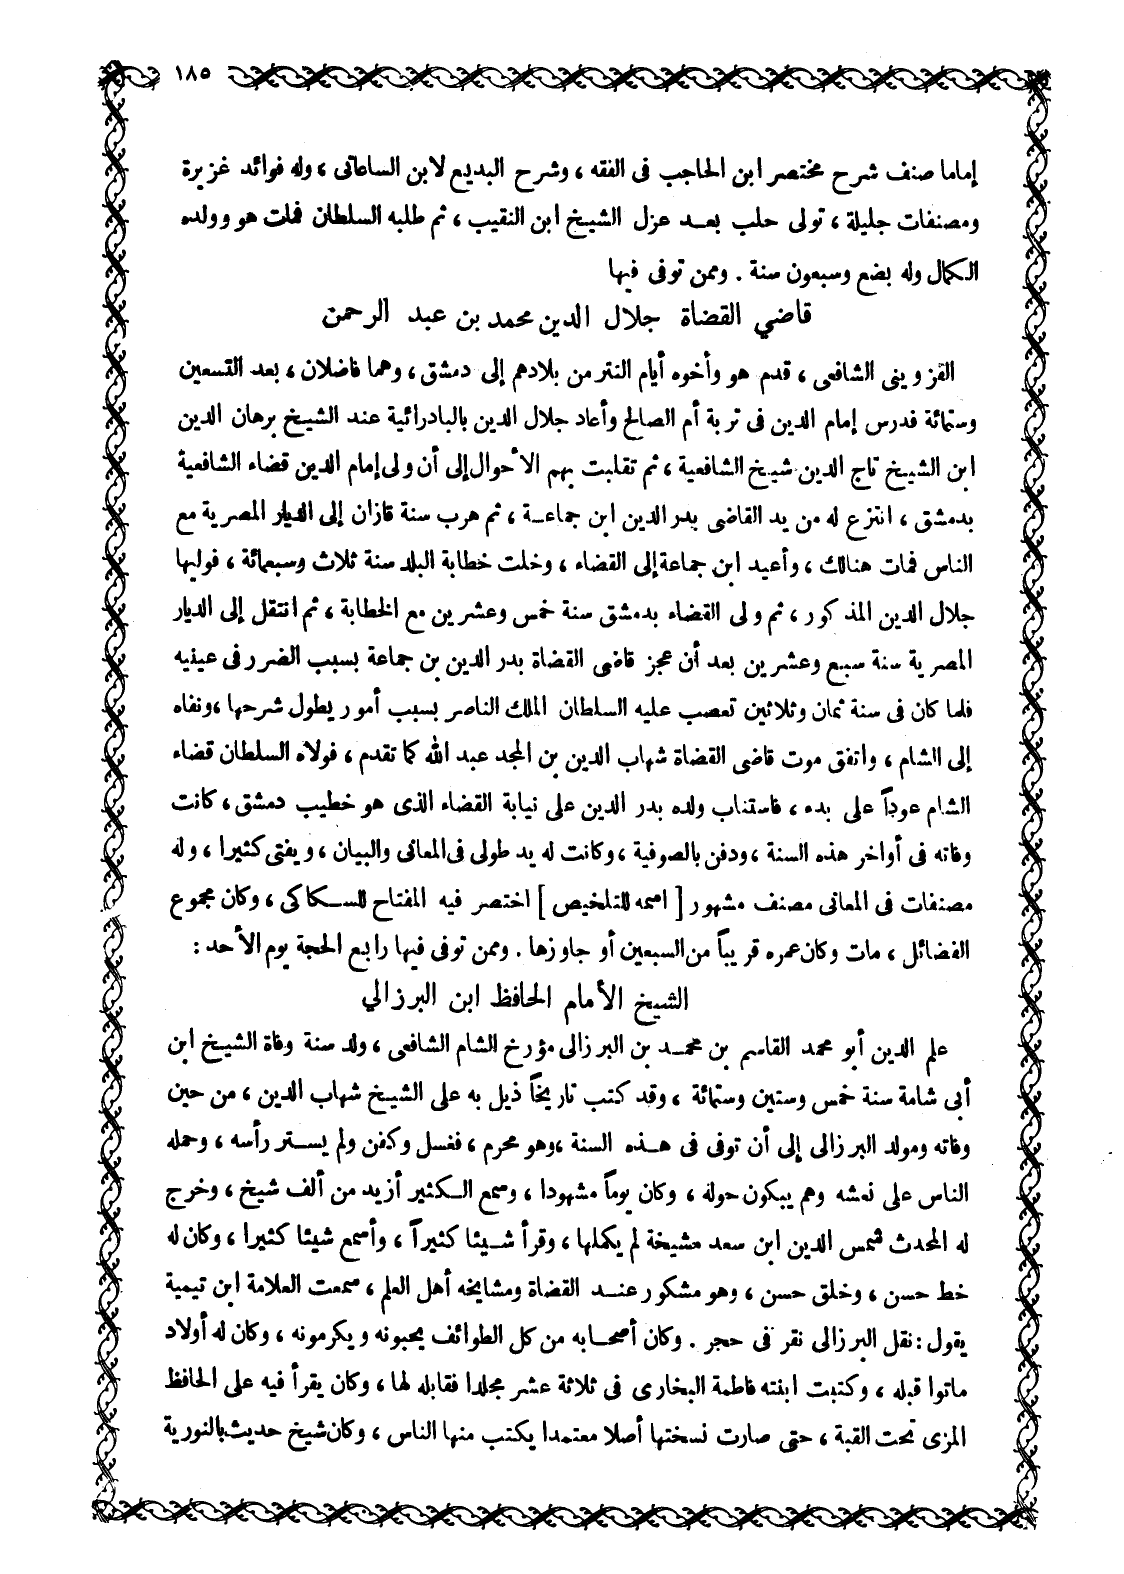 ١٨٥
إماما صنف شرح مختصر ابن الحاجب فى الفقه ، وشرح البديع لابن الساعاتى ، وله فوائد غزيرة
ومصنفات جليلة ، تولى حلب بعد عزل الشيخ ابن النقيب ، ثم طلبه السلطان فمات هو وولده
الكمال وله بضع وسبعون سنة . وممن توفى فيها
قاضي القضاة جلال الدين محمد بن عبد الرحمن
القزوينى الشافعى ، قدم هو وأخوه أيام التتر من بلادهم إلى دمشق ، وهما فاضلان ، بعد التسعين
وستمائة فدرس إمام الدين فى تربة أم الصالح وأعاد جلال الدين بالبادرائية عند الشيخ برهان الدين
ابن الشيخ تاج الدين شيخ الشافعية ، ثم تقلبت بهم الأحوال إلى أن ولى إمام الدين قضاء الشافعية
بدمشق ، انتزع له من يد القاضى بدر الدين ابن جماعة ، ثم هرب سنة قازان إلى الديار المصرية مع
الناس فمات هنالك ، وأعيد ابن جماعة إلى القضاء ، وخلت خطابة البلد سنة ثلاث وسبعمائة ، فوليها
جلال الدين المذكور ، ثم ولى القضاء بدمشق سنة خمس وعشرين مع الخطابة ، ثم انتقل إلى الديار
المصرية سنة سبع وعشرين بعد أن عجز قاضى القضاة بدر الدين بن جماعة بسبب الضرر فى عينيه
فلما كان فى سنة ثمان وثلاثين تعصب عليه السلطان الملك الناصر بسبب أمور يطول شرحها ، ونفاه
إلى الشام ، واتفق موت قاضى القضاة شهاب الدين بن المجد عبد الله كما تقدم ، فولاه السلطان قضاء
الشام عوداً على بدء ، فاستناب ولده بدر الدين على نيابة القضاء الذى هو خطيب دمشق ، كانت
وفاته فى أواخر هذه السنة ، ودفن بالصوفية ، وكانت له يد طولى فى المعانى والبيان ، ويفتى كثيرا ، وله
مصنفات فى المعانى مصنف مشهور [ اسمه التلخيص ] اختصر فيه المفتاح للسكاكى ، وكان مجموع
الفضائل ، مات وكان عمره قريباً من السبعين أو جاوزها . وممن توفى فيها رابع الحجة يوم الأحد :
الشيخ الأمام الحافظ ابن البرزالي
علم الدين أبو محمد القاسم بن محمد بن البرزالى مؤرخ الشام الشافعى ، ولد سنة وفاة الشيخ ابن
أبى شامة سنة خمس وستين وستمائة ، وقد كتب تاريخاً ذيل به على الشيخ شهاب الدين ، من حين
وفاته ومولد البرزالى إلى أن توفى فى هذه السنة ، وهو محرم ، فغسل وكفن ولم يستر رأسه ، وحمله
الناس على نعشه وهم يبكون حوله ، وكان يوماً مشهودا ، وسمع الكثير أزيد من ألف شيخ ، وخرج
له المحدث شمس الدين ابن سعد مشيخة لم يكملها ، وقرأ شيئا كثيراً ، وأسمع شيئا كثيرا ، وكان له
خط حسن ، وخلق حسن ، وهو مشكور عند القضاة ومشايخه أهل العلم ، سمعت العلامة ابن تيمية
يقول : نقل البرزالى نقر فى حجر . وكان أصحابه من كل الطوائف يحبونه ويكرمونه ، وكان له أولاد
ماتوا قبله ، وكتبت ابنته فاطمة البخارى فى ثلاثة عشر مجلدا فقابله لها ، وكان يقرأ فيه على الحافظ
المزى تحت القبة ، حتى صارت نسختها أصلا معتمدا يكتب منها الناس ، وكان شيخ حديث بالنورية